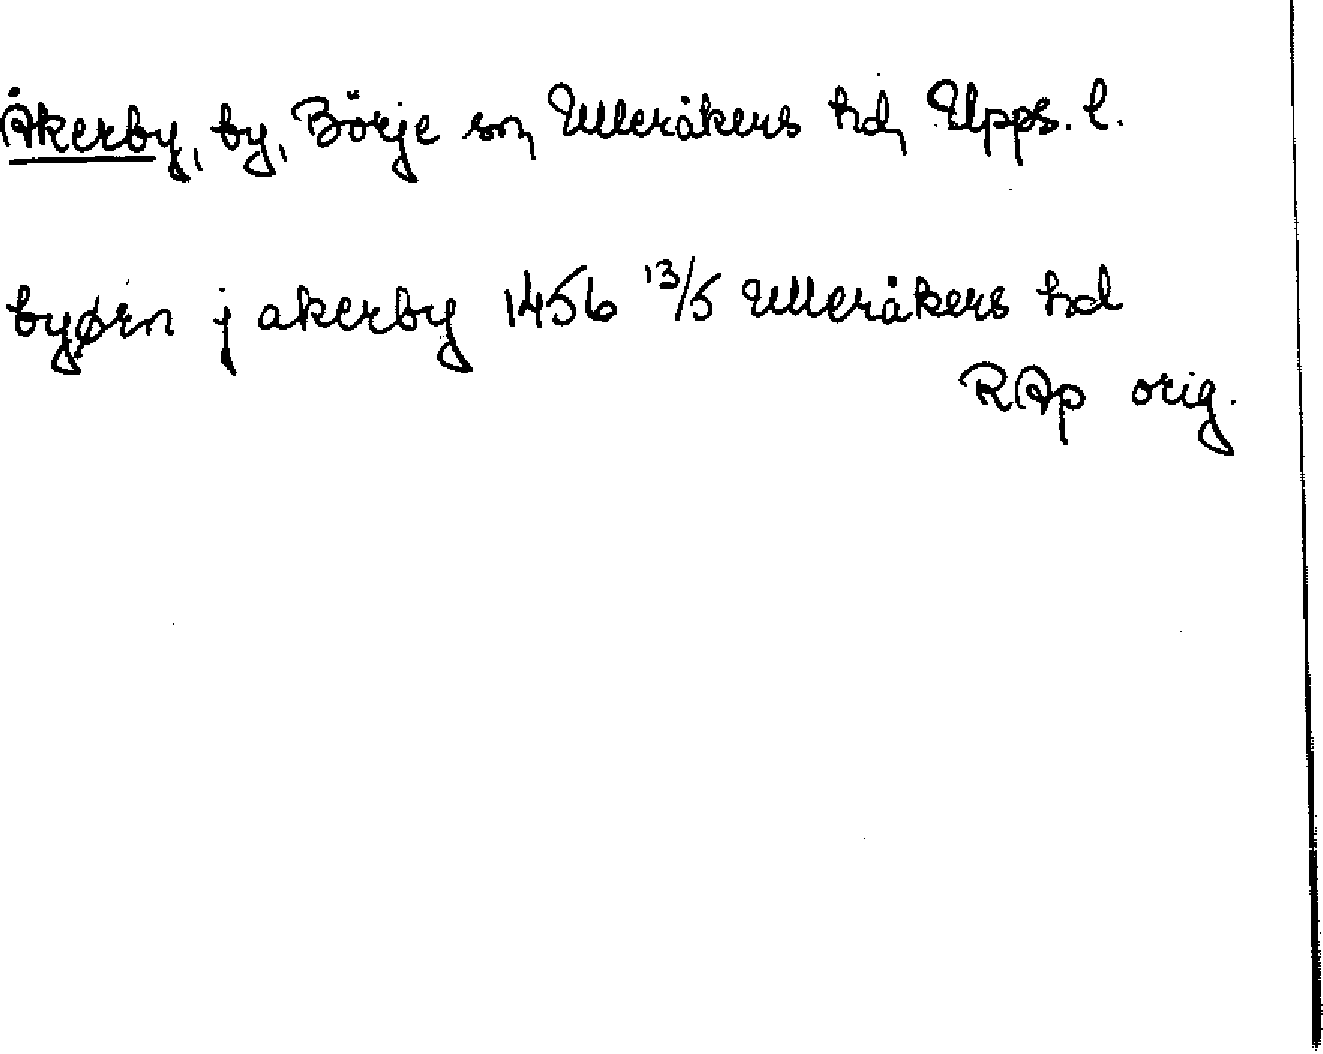 Åkerby, by, Börje sn, Ulleråkers hd, Upps. l.
byørn j akerby 1456 13/5 Ulleråkers hd
RAp orig.